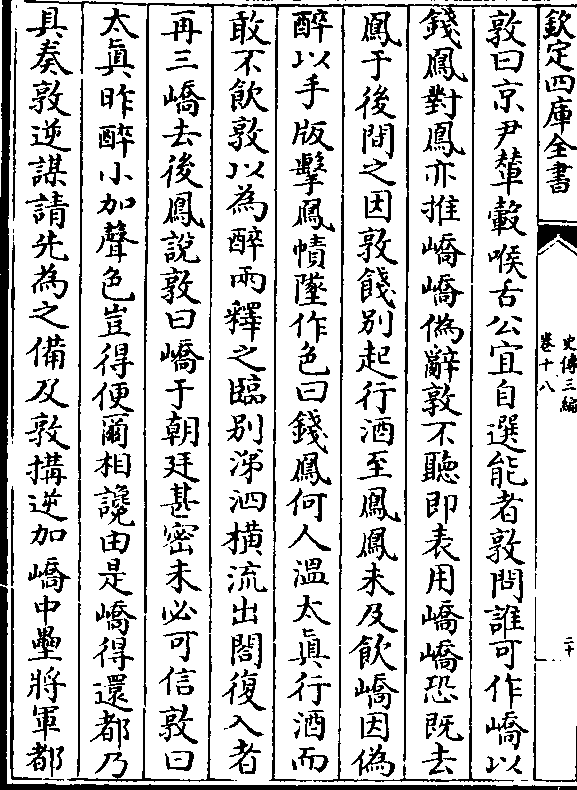 欽定四庫全書
史傳三編
卷十八
二十
敦曰京尹輦轂喉舌公宜自選能者敦問誰可作嶠以
錢鳳對鳳亦推嶠嶠偽辭敦不聽即表用嶠嶠恐既去
鳳于後間之因敦餞別起行酒至鳳鳳未及飲嶠因偽
醉以手版擊鳳幘墜作色曰錢鳳何人溫太眞行酒而
敢不飲敦以為醉兩釋之臨別涕泗橫流出閤復入者
再三嶠去後鳳説敦曰嶠于朝廷甚密未必可信敦曰
太眞昨醉小加聲色豈得便爾相讒由是嶠得還都乃
具奏敦逆謀請先為之備及敦搆逆加嶠中壘將軍都